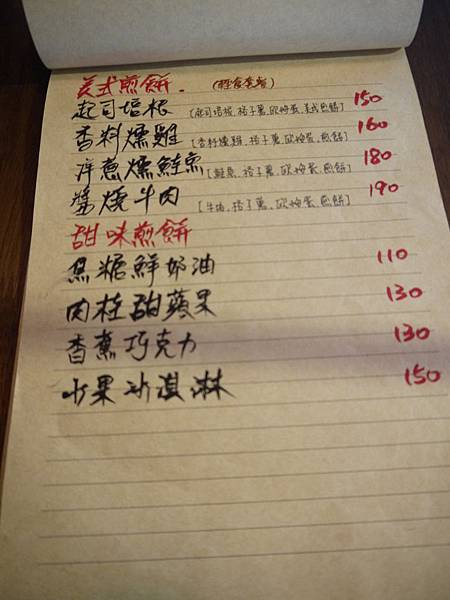 美式煎餅. (輕食套餐)
起司培根 [起司培根, 格子薯, 欧姆蛋, 美式煎餅] 150
香料燻雞 [香料燻雞, 格子薯, 欧姆蛋, 煎餅] 160
洋蔥燻鮭魚 [鮭魚, 格子薯, 欧姆蛋, 煎餅] 180
醬燒牛肉 [牛肉, 格子薯, 欧姆蛋, 煎餅] 190
甜味煎餅
焦糖鮮奶油 110
肉桂甜蘋果 130
香蕉巧克力 130
水果冰淇淋 150